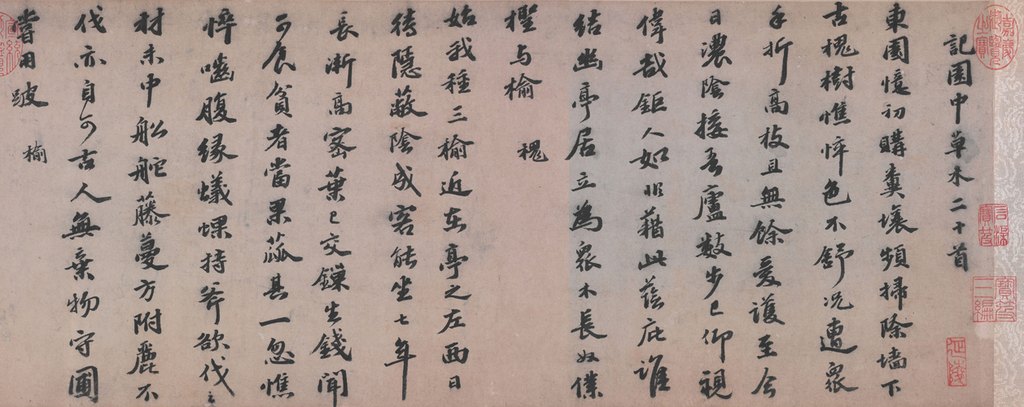 記園中草木二十首
東園憶初購糞壤頻掃除墻下
古槐樹憔悴色不舒況遭衆
手折高枝且無餘愛護至今
日濃陰接吾廬數步已仰視
偉哉鉅人如非藉此蔭庇誰
結幽亭居立為衆木長奴僕
檉与榆
槐
始我種三榆近在亭之左西日
待隱蔽陰成客能坐七年
長漸高密葉已交鏁生錢聞
可食貧者當果蓏其一忽憔
悴嚙腹緣蟻蜾持斧欲伐之
材未中船舵藤蔓方附麗不
伐亦自可古人無棄物守圃
當用跛
榆
嘉慶御覽之寶
石渠寶笈
寶笈三編